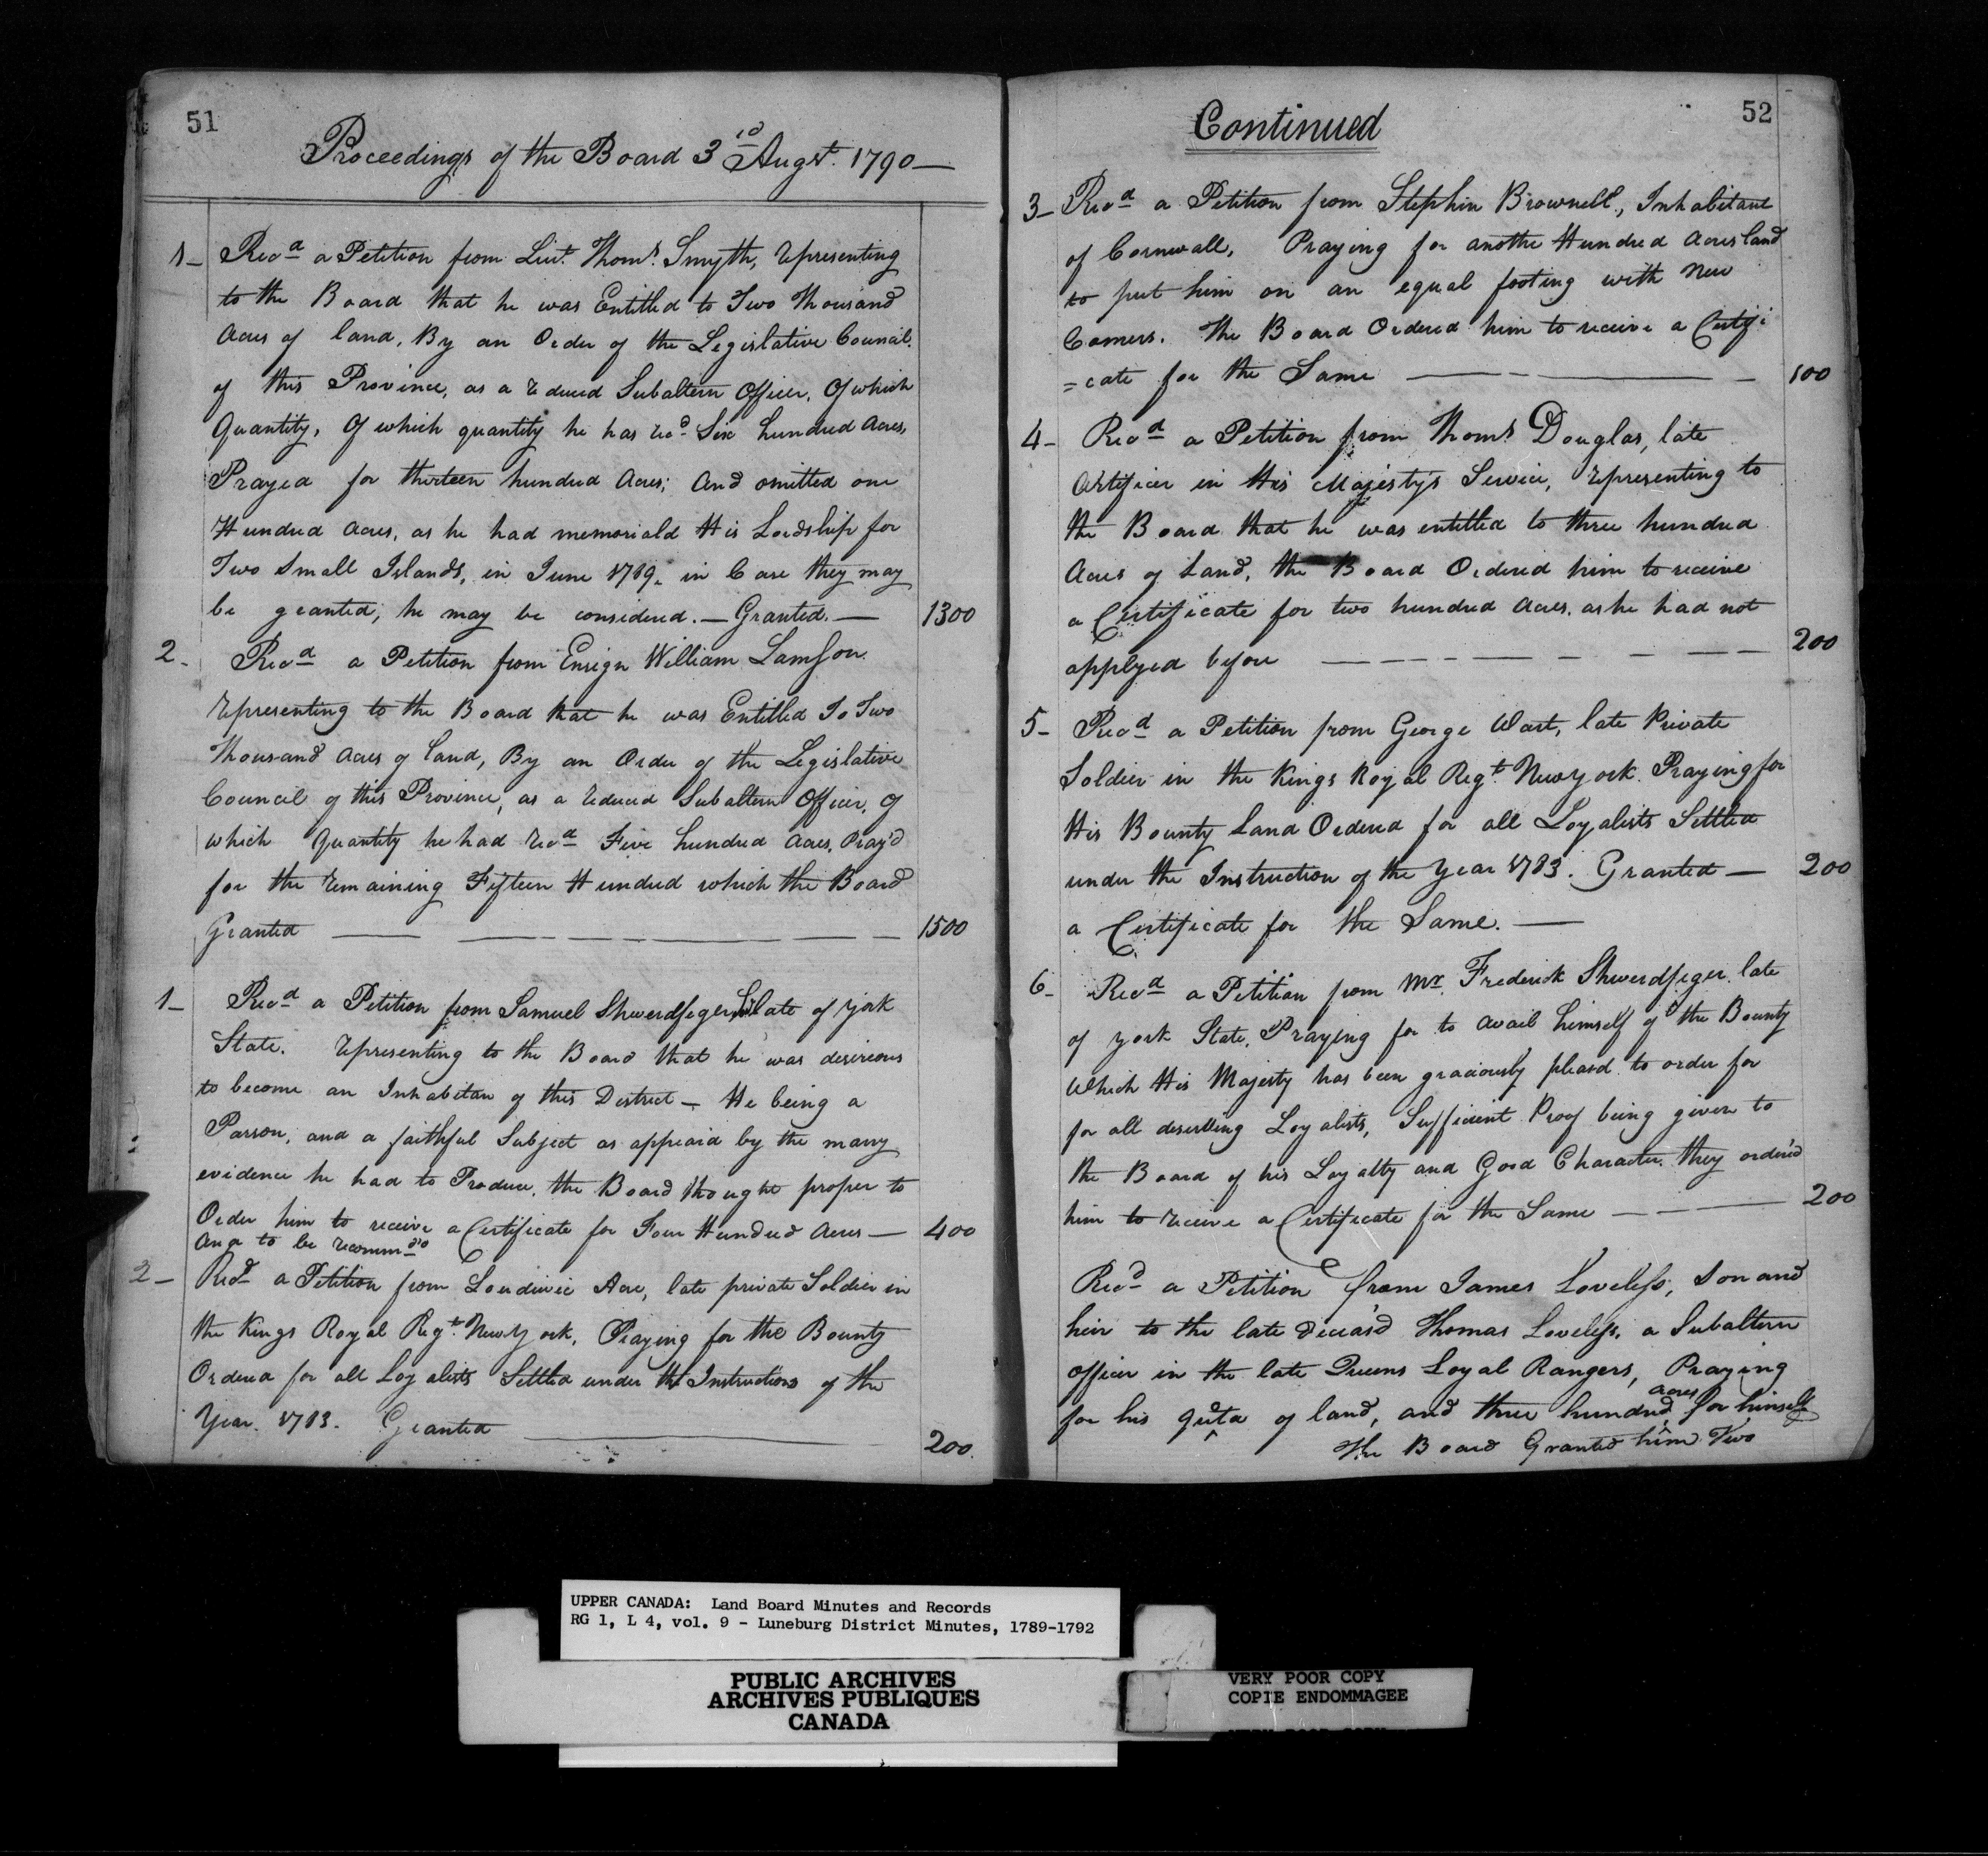 51
Proceedings of the Board 3rd Augst. 1790—
1— Recd a Petition from Lieut. Thoms. Smyth, representing
to the Board that he was Entitled to Two Thousand
Acres of land, By an Order of the Legislative Council
of this Province, as a reduced Subaltern Officer, Of which
Quantity, Of which quantity he has recd Six hundred Acres,
Prayed for thirteen hundred Acres; And omitted one
Hundred Acres, as he had memoriald His Lordship for
Two Small Islands, in June 1789. in Case they may
be granted, he may be considered.—Granted.— 1300
2- Recd a Petition from Ensign William Lamson.
representing to the Board that he was Entitled To Two
Thousand Acres of land, By an Order of the Legislative
Council of this Province, as a reduced Subaltern Officer, Of
which Quantity he had recd Five hundred Acres, Pray'd
for the remaining Fifteen Hundred which the Board
Granted — 1500
1— Recd a Petition from Samuel Shwerdfeger late of York
State. representing to the Board that he was desireous
to become an Inhabitan of this District— He being a
Parson, and a faithful Subject as appeaid by the many
evidence he had to Produce, the Board thought proper to
Order him to receive a Certificate for Four Hundred Acres— 400
and to be recommd'd
2— Recd a Petition from Loudivic Acre, late private Soldier in
the Kings Royal Regt. New York, Praying for the Bounty
Ordered for all Loyalists Settled under the Instructions of the
Year. 1783. Granted — 200.
52
Continued
3— Recd a Petition from Stephin Brownell, Inhabitant
of Cornwall, Praying for anothe Hundred Acres land
to put him on an equal footing with New
Comers. The Board Ordered him to receive a Certifi
=cate for the Same — 100
4- Recd a Petition from Thoms Douglas, late
Artificer in His Majesty's Service, representing to
the Board that he was entitled to three hundred
Acres of Land, the Board Ordered him to receive
a Certificate for two hundred Acres. as he had not
applyed before — 200
5- Recd a Petition from George Wart, late Private
Soldier in the Kings Royal Regt. New York. Praying for
His Bounty Land Ordered for all Loyalists Settled
under the Instruction of the Year 1783. Granted— 200
a Certificate for the Same.—
6- Recd a Petition from Mr. Frederick Shwerdfeger late
of York State, Praying for to avail himself of the Bounty
Which His Majesty has been graciously pleasd to order for
for all deserving Loyalists, Sufficient Proof being given to
the Board of his Loyalty and Good Character. they orderd
him to receive a Certificate for the Same — 200
Recd a Petition from James Loveless, Son and
heir to the late Deceas'd Thomas Loveless, a Subaltern
officer in the late Queens Loyal Rangers, Praying
for his quota of land, and three hundred acres for himself
The Board Granted him Two
UPPER CANADA: Land Board Minutes and Records
RG 1, L 4, vol. 9 - Luneburg District Minutes, 1789-1792
PUBLIC ARCHIVES
ARCHIVES PUBLIQUES
CANADA
VERY POOR COPY
COPIE ENDOMMAGEE
VERY POOR COPY